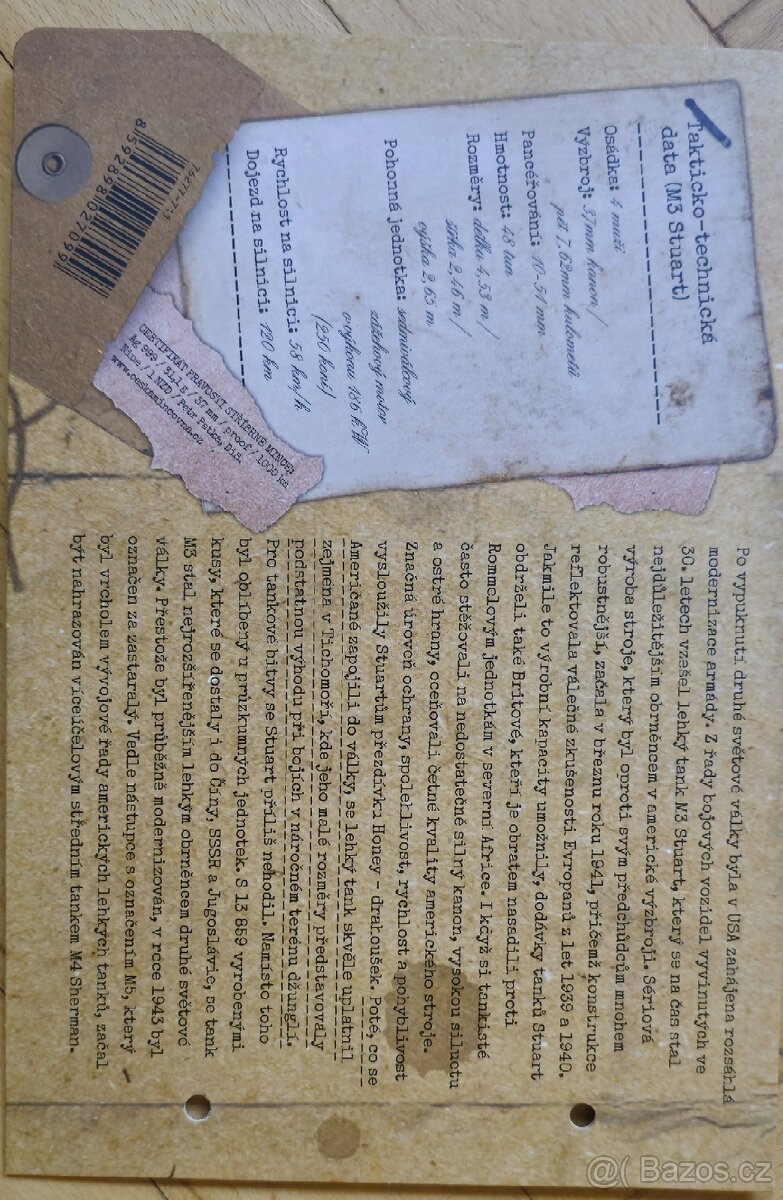 Takticko-technická
data (M3 Stuart)
Osádka: 4 muži
Výzbroj: 37mm kanon /
pět 7,62mm kulometů
Pancéřování: 10-51 mm
Hmotnost: 48 tun
Rozměry: délka 4,53 m /
šířka 2,46 m /
výška 2,65 m
Pohonná jednotka: sedmiválcový
zážehový motor
o výkonu 186 kW
(250 koní)
Rychlost na silnici: 58 km/h
Dojezd na silnici: 120 km
76277-713
8 592898 027099
CERTIFIKÁT PRAVOSTI STŘÍBRNÉ MINCE:
Ag 999 / 31,1 g / 37 mm / proof / 1000 ks
Niue / 1 NZD / Petr Patka, DiS.
www.ceskamincovna.cz
Po vypuknutí druhé světové války byla v USA zahájena rozsáhlá
modernizace armády. Z řady bojových vozidel vyvinutých ve
30. letech vzešel lehký tank M3 Stuart, který se na čas stal
nejdůležitějším obrněncem v americké výzbroji. Sériová
výroba stroje, který byl oproti svým předchůdcům mnohem
robustnější, začala v březnu roku 1941, přičemž konstrukce
reflektovala válečné zkušenosti Evropanů z let 1939 a 1940.
Jakmile to výrobní kapacity umožnily, dodávky tanků Stuart
obdrželi také Britové, kteří je obratem nasadili proti
Rommelovým jednotkám v severní Africe. I když si tankisté
často stěžovali na nedostatečně silný kanon, vysokou siluetu
a ostré hrany, oceňovali četné kvality amerického stroje.
Značná úroveň ochrany, spolehlivost, rychlost a pohyblivost
vysloužily Stuartům přezdívku Honey – drahoušek. Poté, co se
Američané zapojili do války, se lehký tank skvěle uplatnil
zejména v Tichomoří, kde jeho malé rozměry představovaly
podstatnou výhodu při bojích v náročném terénu džunglí.
Pro tankové bitvy se Stuart příliš nehodil. Namísto toho
byl oblíbený u průzkumných jednotek. S 13 859 vyrobenými
kusy, které se dostaly i do Číny, SSSR a Jugoslávie, se tank
M3 stal nejrozšířenějším lehkým obrněncem druhé světové
války. Přestože byl průběžně modernizován, v roce 1943 byl
označen za zastaralý. Vedle nástupce s označením M5, který
byl vrcholem vývojové řady amerických lehkých tanků, začal
být nahrazován víceúčelovým středním tankem M4 Sherman.
@( Bazos.cz